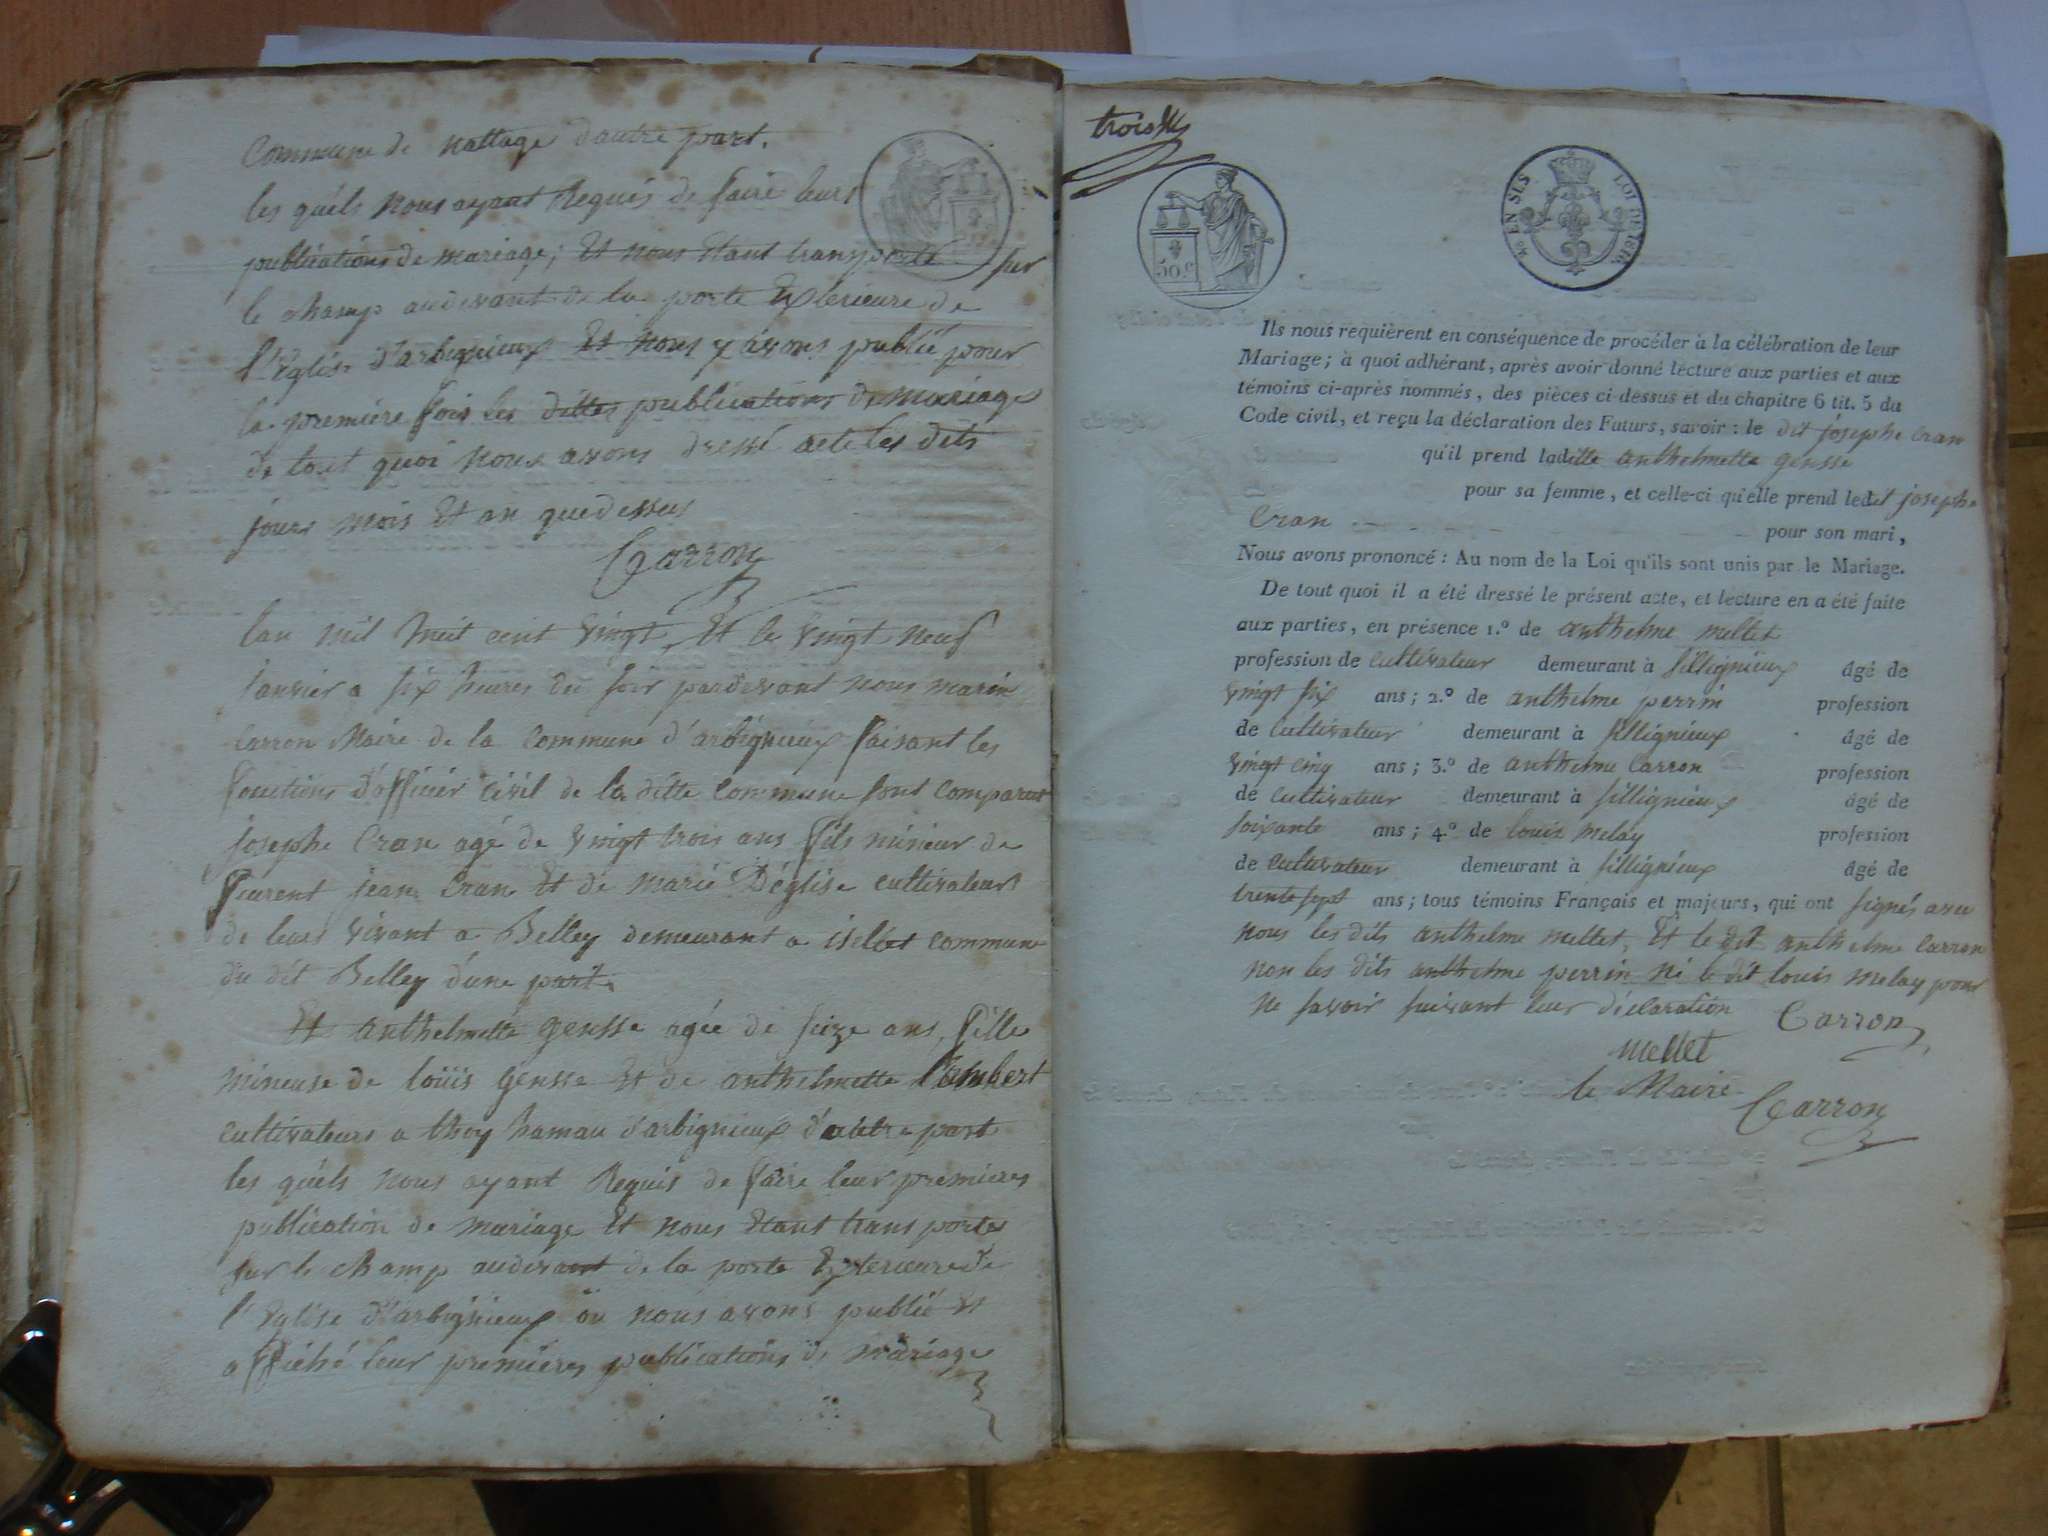 Commune de nattage d'autre part.
les quéls nous ayant Requis de faire leurs
publications de mariage; Et nous Etant transporté sur
le champ audevant de la porte Exterieure de
l'Eglise d'arbignieux Et nous y avons publié pour
la première fois les dittes publications de mariage
de tout quoi nous avons dressé acte les dits
jours mois Et an quedessus
Carron
lan mil huit cent vingt, Et le vingt neuf
janvier a six heures du soir pardevant nous marin
Carron Maire de la Commune d'arbignieux faisant les
fonctions d'officier civil de la ditte commune sont comparut
josephe Cran agé de vingt trois ans fils mineur de
feurent jean Cran Et de marie Déglise cultivateurs
de leurs vivant a Belley demeurant a commune
du dit Belley d'une part.
Et anthelmette gensse agée de seize ans, fille
mineuse de loüis gensse Et de anthelmette lambert
cultivateurs a thoy hamau d'arbignieux d'autre part
les quéls nous ayant Requis de faire leur premieres
publication de mariage Et nous Etant transportés
sur le champ audevant de la porte Exterieure de
l'Eglise d'arbignieux ou nous avons publié Et
affiché leur premières publications de mariage
trois
50 c
4e EN SUS LOI DE 1816
Ils nous requièrent en conséquence de procéder à la célébration de leur
Mariage; à quoi adhérant, après avoir donné lecture aux parties et aux
témoins ci-après nommés, des pièces ci-dessus et du chapitre 6 tit. 5 du
Code civil, et reçu la déclaration des Futurs, savoir : le dit josephe Cran
qu'il prend laditte anthelmette gensse
pour sa femme, et celle-ci qu'elle prend ledit josephe
Cran pour son mari,
Nous avons prononcé : Au nom de la Loi qu'ils sont unis par le Mariage.
De tout quoi il a été dressé le présent acte, et lecture en a été faite
aux parties, en présence 1.° de anthelme mellet
profession de cultivateur demeurant à sillignieux âgé de
vingt six ans; 2.° de anthelme perrin profession
de cultivateur demeurant à sillignieux âgé de
vingt cinq ans; 3.° de anthelme Carron profession
de cultivateur demeurant à sillignieux âgé de
soixante ans; 4.° de louis melay profession
de cultivateur demeurant à sillignieux âgé de
trente sept ans; tous témoins Français et majeurs, qui ont signés avec
nous les dits anthelme mellet, Et le dit anthelme Carron
non les dits anthelme perrin ni le dit louis melay pour
ne savoir suivant leur déclaration Carron
mellet
le Maire
Carron